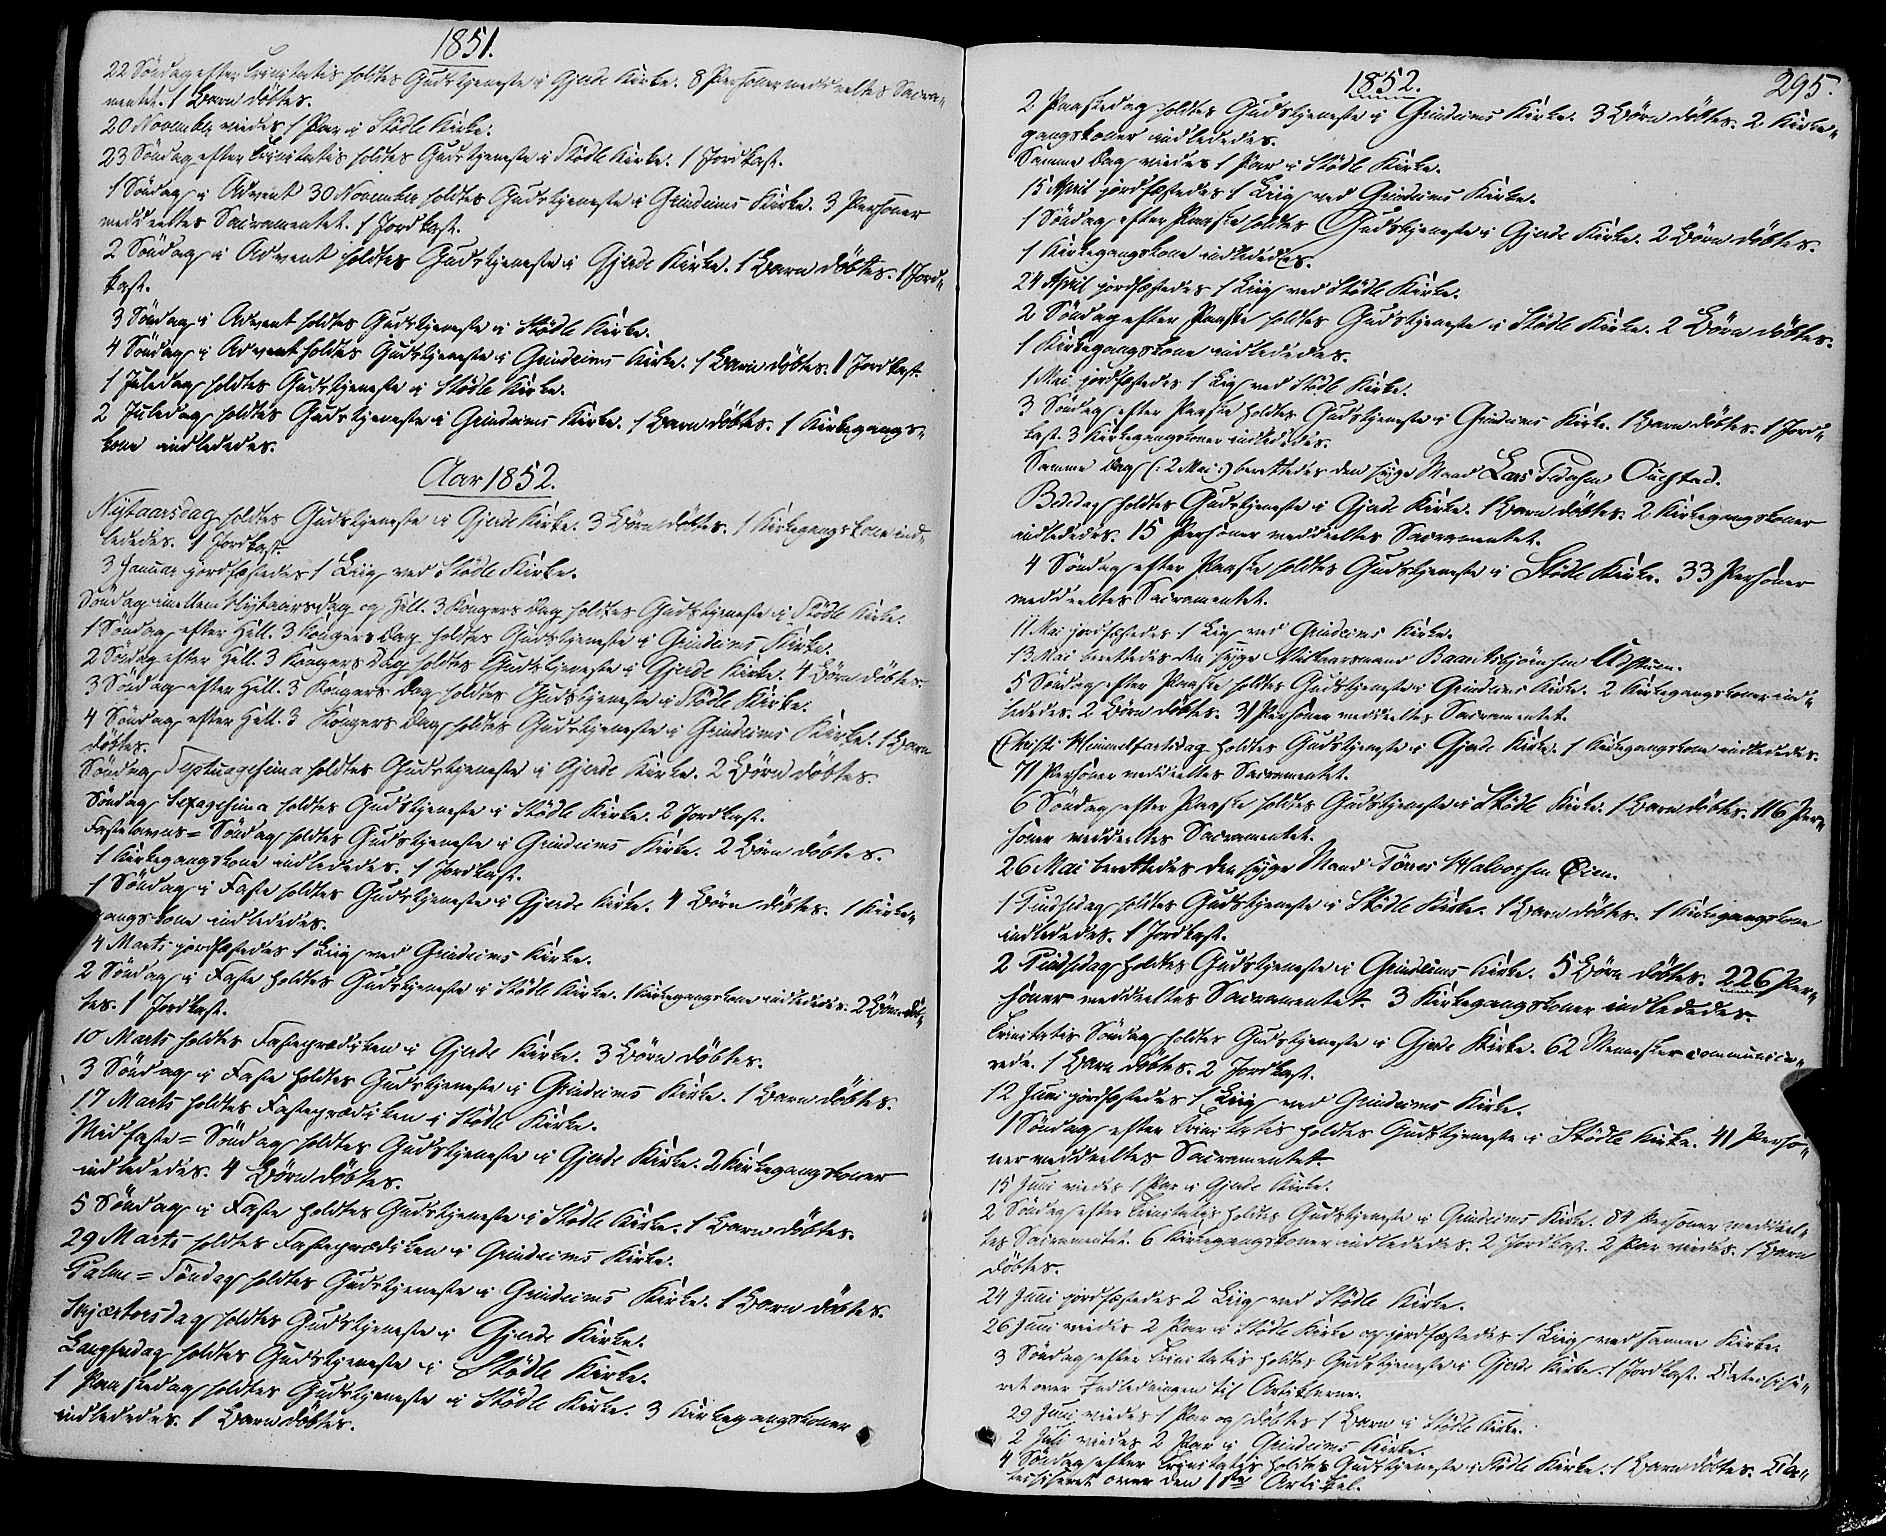 1851.
22 Söndag efter Trinitatis holdtes Gudstjeneste i Gjerde Kirke. 8 Personer meddeeltes Sacra-
mentet. 1 Barn döbtes.
20 November viedes 1 Par i Stödle Kirke.
23 Söndag efter Trinitatis holdtes Gudstjeneste i Stödle Kirke. 1 Jordkast.
1 Söndag i Advent 30 November holdtes Gudstjeneste i Grindeims Kirke. 3 Personer
meddeeltes Sacramentet. 1 Jordkast.
2 Söndag i Advent holdtes Gudstjeneste i Gjerde Kirke. 1 Barn döbtes. 1 Jord-
kast.
3 Söndag i Advent holdtes Gudstjeneste i Stödle Kirke.
4 Söndag i Advent holdtes Gudstjeneste i Grindeims Kirke. 1 Barn döbtes. 1 Jordkast.
1 Juledag holdtes Gudstjeneste i Stödle Kirke.
2 Juledag holdtes Gudstjeneste i Grindeims Kirke. 1 Barn döbtes. 1 Kirkegangs-
kone indlededes.
Aar 1852.
Nytaarsdag holdtes Gudstjeneste i Gjerde Kirke. 3 Börn döbtes. 1 Kirkegangskone ind-
lededes. 1 Jordkast.
3 Januar jordfæstedes 1 Liig ved Stödle Kirke.
Söndag imellem Nytaarsdag og Hell. 3 Kongers Dag holdtes Gudstjeneste i Stödle Kirke.
1 Söndag efter Hell. 3 Kongers Dag holdtes Gudstjeneste i Grindeims Kirke.
2 Söndag efter Hell. 3 Kongers Dag holdtes Gudstjeneste i Gjerde Kirke. 4 Börn döbtes.
3 Söndag efter Hell. 3 Kongers Dag holdtes Gudstjeneste i Stödle Kirke.
4 Söndag efter Hell. 3 Kongers Dag holdtes Gudstjeneste i Grindeims Kirke. 1 Barn
döbtes.
Söndag Septuagesima holdtes Gudstjeneste i Gjerde Kirke. 2 Börn döbtes.
Söndag Sexagesima holdtes Gudstjeneste i Stödle Kirke. 2 Jordkast.
Fastelavns=Söndag holdtes Gudstjeneste i Grindeims Kirke. 2 Börn döbtes.
1 Kirkegangskone indlededes. 1 Jordkast.
1 Söndag i Faste holdtes Gudstjeneste i Gjerde Kirke. 4 Börn döbtes. 1 Kirke-
gangskone indlededes.
4 Marts jordfæstedes 1 Liig ved Grindeims Kirke.
2 Söndag i Faste holdtes Gudstjeneste i Stödle Kirke. 1 Kirkegangskone indlededes. 2 Börn döb-
tes. 1 Jordkast.
10 Marts holdtes Fasteprædiken i Gjerde Kirke. 3 Börn döbtes.
3 Söndag i Faste holdtes Gudstjeneste i Grindeims Kirke. 1 Barn döbtes.
17 Marts holdtes Fasteprædiken i Stödle Kirke.
Midfaste=Söndag holdtes Gudstjeneste i Gjerde Kirke. 2 Kirkegangskoner
indlededes. 4 Börn döbtes.
5 Söndag i Faste holdtes Gudstjeneste i Stödle Kirke. 1 Barn döbtes.
29 Marts holdtes Fasteprædiken i Grindeims Kirke.
Palme=Söndag holdtes Gudstjeneste i Grindeims Kirke. 1 Barn döbtes.
Skjærtorsdag holdtes Gudstjeneste i Gjerde Kirke.
Langfredag holdtes Gudstjeneste i Stödle Kirke.
1 Paaskedag holdtes Gudstjeneste i Stödle Kirke. 3 Kirkegangskoner
indlededes. 1 Barn döbtes.
1852.
295.
2 Paaskedag holdtes Gudstjeneste i Grindeims Kirke. 3 Börn döbtes. 2 Kirke-
gangskoner indlededes.
Samme Dag viedes 1 Par i Stödle Kirke.
15 April jordfæstedes 1 Liig ved Grindeims Kirke.
1 Söndag efter Paaske holdtes Gudstjeneste i Gjerde Kirke. 2 Börn döbtes.
1 Kirkegangskone indlededes.
24 April jordfæstedes 1 Liig ved Stödle Kirke.
2 Söndag efter Paaske holdtes Gudstjeneste i Stödle Kirke. 2 Börn döbtes.
1 Kirkegangskone indlededes.
1 Mai jordfæstedes 1 Liig ved Stödle Kirke.
3 Söndag efter Paaske holdtes Gudstjeneste i Grindeims Kirke. 1 Barn döbtes. 1 Jord-
kast. 3 Kirkegangskoner indlededes.
Samme Dag (: 2 Mai :) berettedes den syge Mand Lars
Bededag holdtes Gudstjeneste i Gjerde Kirke. 1 Barn döbtes. 2 Kirkegangskoner
indlededes. 15 Personer meddeeltes Sacramentet.
4 Söndag efter Paaske holdtes Gudstjeneste i Stödle Kirke. 33 Personer
meddeeltes Sacramentet.
11 Mai jordfæstedes 1 Liig ved Grindeims Kirke.
13 Mai berettedes den syge
5 Söndag efter Paaske holdtes Gudstjeneste i Grindeims Kirke. 2 Kirkegangskoner ind-
lededes. 2 Börn döbtes. 31 Personer meddeeltes Sacramentet.
Christi Himmelfartsdag holdtes Gudstjeneste i Gjerde Kirke. 1 Kirkegangskone indlededes.
71 Personer meddeeltes Sacramentet.
6 Söndag efter Paaske holdtes Gudstjeneste i Stödle Kirke. 1 Barn döbtes. 116 Per-
soner meddeeltes Sacramentet.
26 Mai berettedes den syge Mand Tönnes Halvorsen Öien.
1 Pindsedag holdtes Gudstjeneste i Stödle Kirke. 1 Barn döbtes. 1 Kirkegangskone
indlededes. 1 Jordkast.
2 Pindsedag holdtes Gudstjeneste i Grindeims Kirke. 5 Börn döbtes. 226 Per-
soner meddeeltes Sacramentet. 3 Kirkegangskoner indlededes.
Trinitatis Söndag holdtes Gudstjeneste i Gjerde Kirke. 62 Mennesker communice-
rede. 1 Barn döbtes. 2 Jordkast.
12 Juni jordfæstedes 1 Liig ved Grindeims Kirke.
1 Söndag efter Trinitatis holdtes Gudstjeneste i Stödle Kirke. 41 Perso-
ner meddeeltes Sacramentet.
15 Juni viedes 1 Par i Gjerde Kirke.
2 Söndag efter Trinitatis holdtes Gudstjeneste i Grindeims Kirke. 84 Personer meddeel-
tes Sacramentet. 6 Kirkegangskoner indlededes. 2 Jordkast. 2 Par viedes. 1 Barn
döbtes.
24 Juni jordfæstedes 2 Liig ved Stödle Kirke.
26 Juni viedes 2 Par i Stödle Kirke og jordfæstedes 1 Liig ved samme Kirke.
3 Söndag efter Trinitatis holdtes Gudstjeneste i Gjerde Kirke. 1 Jordkast. Catechise-
ret over Indledningen til Artiklerne.
29 Juni viedes 1 Par og döbtes 1 Barn i Stödle Kirke.
2 Juli viedes 2 Par i Grindeims Kirke.
4 Söndag efter Trinitatis holdtes Gudstjeneste i Stödle Kirke. 1 Barn döbtes. Ca-
techiseret over den 1ste Artikel.